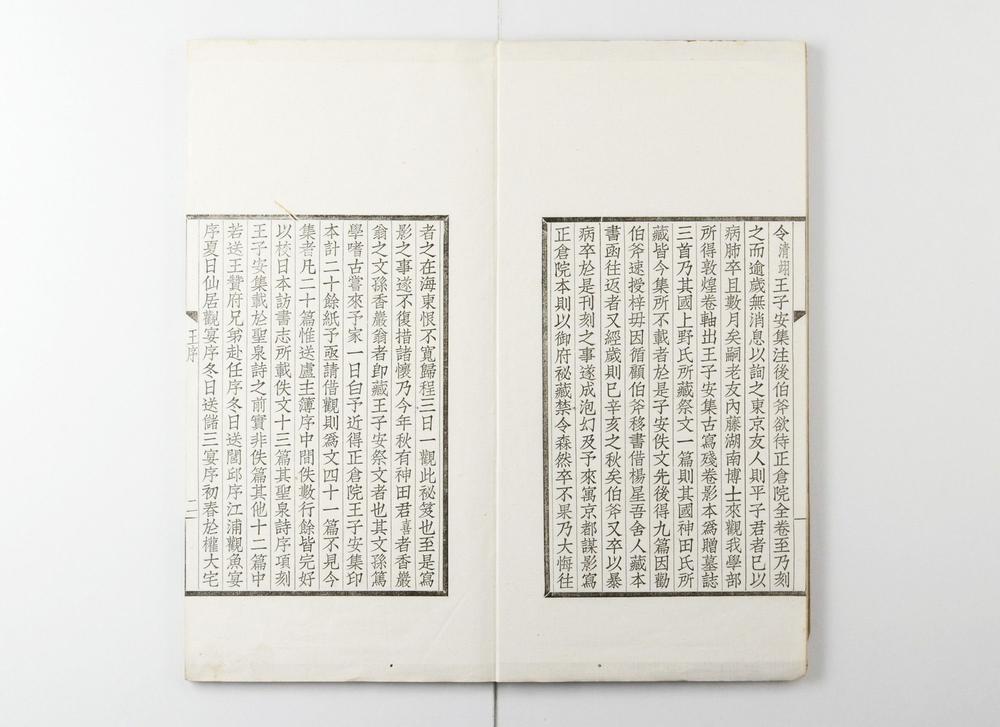 令清翊王子安集注後伯斧欲待正倉院全卷至乃刻
之而逾歲無消息以詢之東京友人則平子君者已以
病肺卒且數月矣嗣老友內藤湖南博士來觀我學部
所得敦煌卷軸出王子安集古寫殘卷影本為贈墓誌
三首乃其國上野氏所藏祭文一篇則其國神田氏所
藏皆今集所不載者於是子安佚文先後得九篇因勸
伯斧速授梓毋因循顧伯斧移書借楊星吾舍人藏本
書函往返者又經歲則已辛亥之秋矣伯斧又卒以暴
病卒於是刊刻之事遂成泡幻及予來寓京都謀影寫
正倉院本則以御府祕藏禁令森然卒不果乃大悔往
者之在海東恨不寬歸程三日一觀此祕笈也至是寫
影之事遂不復措諸懷乃今年秋有神田君喜者香巖
翁之文孫香巖翁者卽藏王子安祭文者也其文孫篤
學嗜古嘗來予家一日白予近得正倉院王子安集印
本計二十餘紙予亟請借觀則為文四十一篇不見今
集者凡二十篇惟送盧主簿序中間佚數行餘皆完好
以校日本訪書志所載佚文十三篇其聖泉詩序項刻
王子安集載於聖泉詩之前實非佚篇其他十二篇中
若送王贊府兄弟赴任序冬日送閭邱序江浦觀魚宴
序夏日仙居觀宴序冬日送儲三宴序初春於權大宅
王序
二